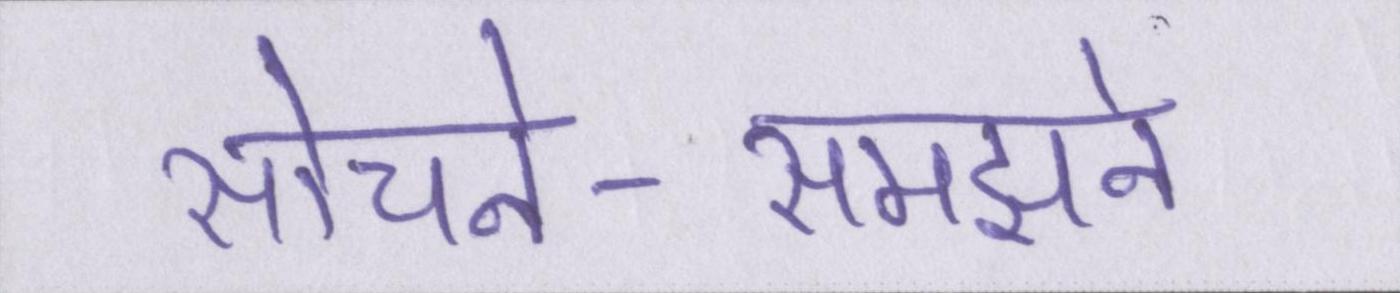 सोचने-समझने